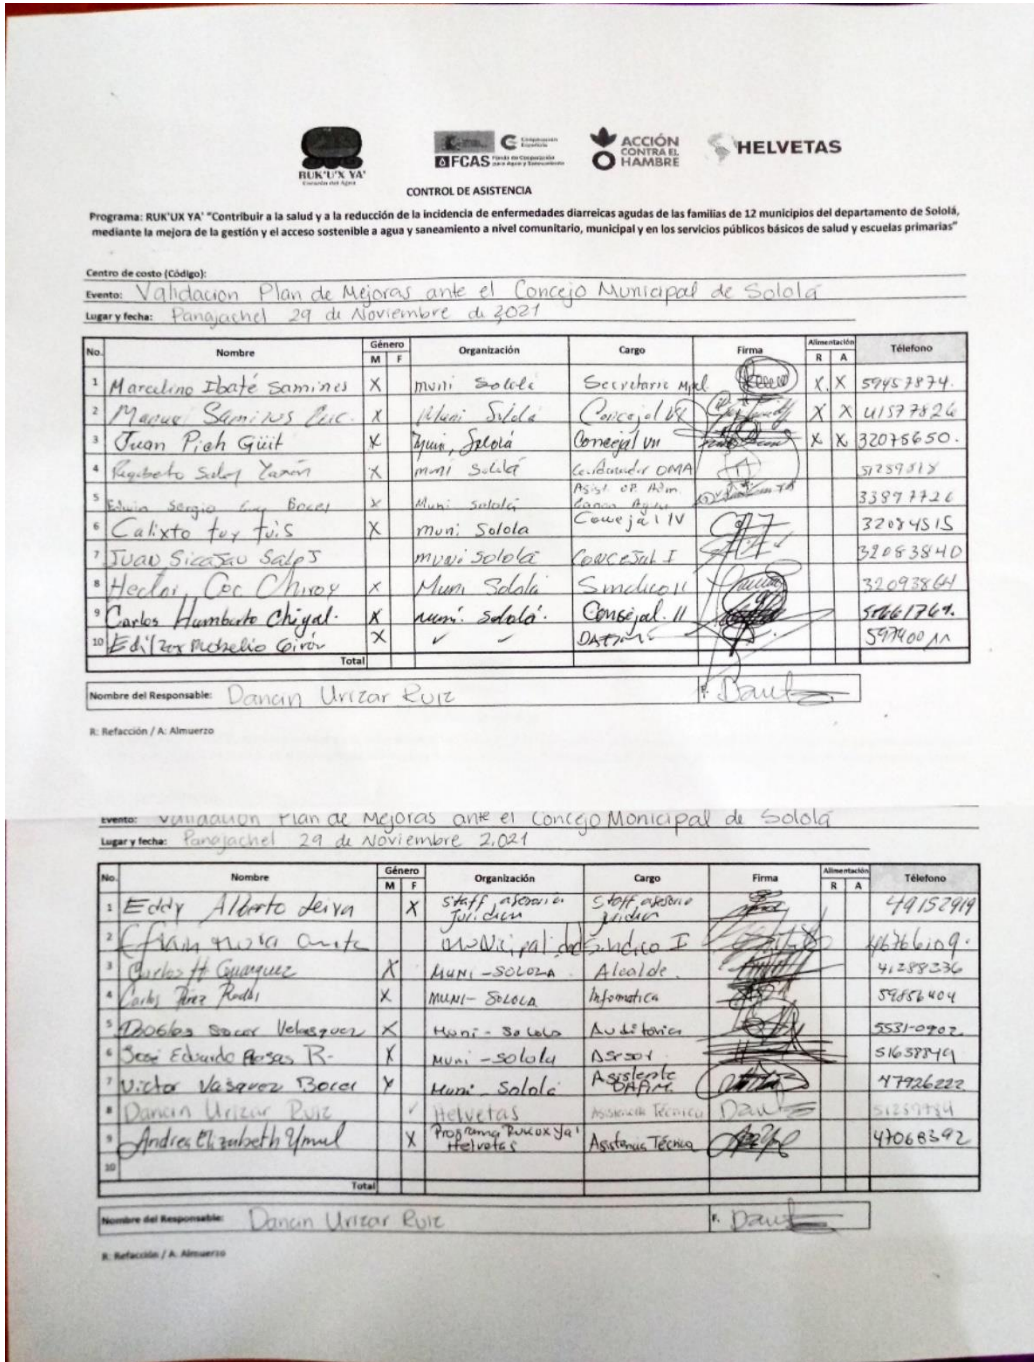 RUK'U'X YA'
Escuela del Agua
Cooperación Española
FCAS Fondo de Cooperación para Agua y Saneamiento
ACCIÓN CONTRA EL HAMBRE
HELVETAS
CONTROL DE ASISTENCIA
Programa: RUK'UX YA' "Contribuir a la salud y a la reducción de la incidencia de enfermedades diarreicas agudas de las familias de 12 municipios del departamento de Sololá,
mediante la mejora de la gestión y el acceso sostenible a agua y saneamiento a nivel comunitario, municipal y en los servicios públicos básicos de salud y escuelas primarias"
Centro de costo (Código):
Evento: Validacion Plan de Mejoras ante el Concejo Municipal de Sololá
Lugar y fecha: Panajachel 29 de Noviembre de 2,021
No. Nombre Género M F Organización Cargo Firma Alimentación R A Télefono
1 Marcelino Ibaté Samines X muni Sololá Secretario Mpal X X 59457874.
2 Manuel Samines X Muni Sololá Concejal X X 41577826
3 Juan Pich Güit X muni, Sololá Concejal VII X X 32075650.
4 X muni Sololá Coordinador OMA
5 Edwin Sergio Bocel x Muni Sololá 33897726
6 Calixto tuy tuis X muni Solola Concejal IV 32084515
7 Juan muni Sololá Concejal I 32083840
8 Hector Coc Chiroy x Muni Sololá Sindico II 32093864
9 Carlos Humberto Chigal. X muni. Sololá. Consejal. II
10 Girón X ✓ ✓
Total
Nombre del Responsable: Dancin Urizar Ruiz F.
R: Refacción / A: Almuerzo
Evento: Validacion Plan de Mejoras ante el Concejo Monicipal de Sololá
Lugar y fecha: Panajachel 29 de Noviembre 2,021
No. Nombre Género M F Organización Cargo Firma Alimentación R A Télefono
1 Eddy Alberto Leiva X Staff, asesoria Juridica Staff asesoria juridica 49152919
2 Municipalidad Sindico I 46766109.
3 Carlos H Guarquez X MUNI-SOLOLA Alcalde. 41288336
4 Carlos Pérez X MUNI-SOLOLA Informatica 59856404
5 Socor Velasquez X Muni-Sololo Auditoria 5531-0902.
6 José Eduardo Rosas R- X Muni-solola Asesor
7 Victor Vasquez Bocel X Muni Sololá Asistente 47926222
8 Dancin Urizar Ruiz ✓ Helvetas Asistencia Técnico
9 Andrea Elizabeth Ymul X Programa Rukux ya' Helvetas Asistencia Técnica 47068392
10
Total
Nombre del Responsable: Dancin Urizar Ruiz F.
R: Refacción / A: Almuerzo